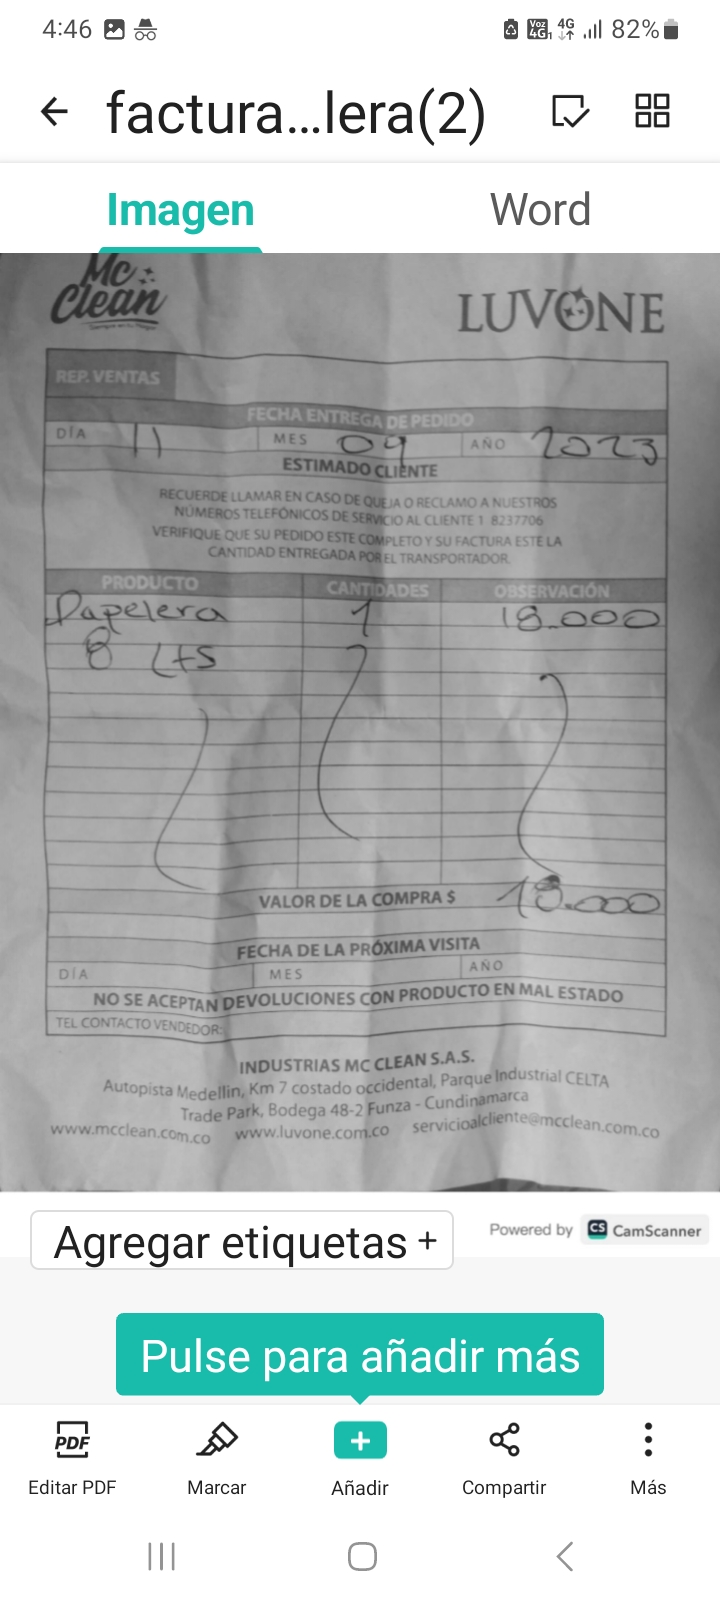 4:46
Voz 4G 4G 82%
factura...lera(2)
Imagen Word
Mc Clean
LUVONE
REP. VENTAS
FECHA ENTREGA DE PEDIDO
DÍA 11 MES 09 AÑO 2023
ESTIMADO CLIENTE
RECUERDE LLAMAR EN CASO DE QUEJA O RECLAMO A NUESTROS
NÚMEROS TELEFÓNICOS DE SERVICIO AL CLIENTE 1 8237706
VERIFIQUE QUE SU PEDIDO ESTE COMPLETO Y SU FACTURA ESTE LA
CANTIDAD ENTREGADA POR EL TRANSPORTADOR.
PRODUCTO CANTIDADES OBSERVACIÓN
Papelera 1 18.000
8 Lts
VALOR DE LA COMPRA $ 18.000
FECHA DE LA PRÓXIMA VISITA
DÍA MES AÑO
NO SE ACEPTAN DEVOLUCIONES CON PRODUCTO EN MAL ESTADO
TEL CONTACTO VENDEDOR:
INDUSTRIAS MC CLEAN S.A.S.
Autopista Medellin, Km 7 costado occidental, Parque Industrial CELTA
Trade Park, Bodega 48-2 Funza - Cundinamarca
www.mcclean.com.co www.luvone.com.co servicioalcliente@mcclean.com.co
Agregar etiquetas +
Powered by CS CamScanner
Pulse para añadir más
PDF
Editar PDF Marcar Añadir Compartir Más